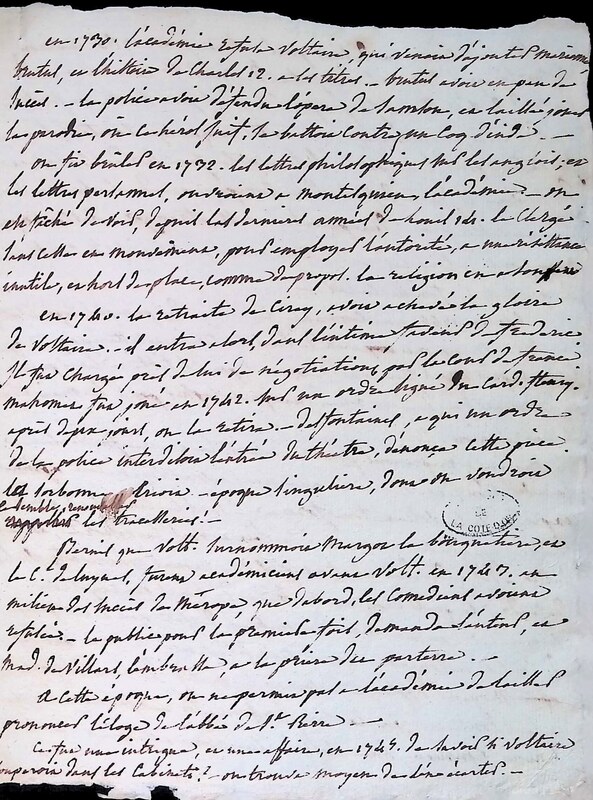 en 1730. l'académie refusa Voltaire, qui venoit d'ajouter
brutus, et l'histoire de Charles 12. a ses titres. - brutus avoit eu peu de
succès. - la police avoit défendu l'opéra de Samson, et laissé jouer
la parodie, où ce héros juif, se battoit contre un Coq d'inde. -
on fit brûler en 1732. les lettres philosophiques sur les anglois; et
les lettres persannes, ouvroient a montesquieu l'académie. - on
est fâché de voir, depuis les dernieres années de Louis 14. le Clergé
sans cesse en mouvement, pour employer l'autorité, a une résistance
inutile, et hors de place, comme de propos. la religion en a souffert
en 1740. la retraite de Cirey, avoit achevé la gloire
de Voltaire. - il entra alors, dans l'intime faveur de frederic
Il fut chargé près de lui de négotiations par la Cour de france
mahomet fut joué en 1742. sur un ordre signé du Card. fleury.
après deux jours, on le retira. - desfontaines, a qui un ordre
de la police interdisoit l'entrée du théatre, dénonça cette pièce.
la sorbonne crioit - époque singuliere, dont on voudroit
les tracasseries! -
Bernis que Volt. surnommoit Margot la bouquetiere, et
le C. de luynes, furent académiciens avant Volt. en 1743. au
milieu des succès de Mérope, que d'abord, les Comédiens avoient
refusée. - le public pour la premiere fois, demanda l'auteur, et
Mad. de Villars, l'embrassa, a la priere du parterre. -
A cette époque, on ne permit pas a l'académie de laisser
prononcer l'éloge de l'abbé de St. Pierre. -
Ce fut une intrigue, et une affaire, en 1745. de savoir si Voltaire
souperoit dans les Cabinets? - on trouva moyen de l'en écarter. -
LA COTE D'OR